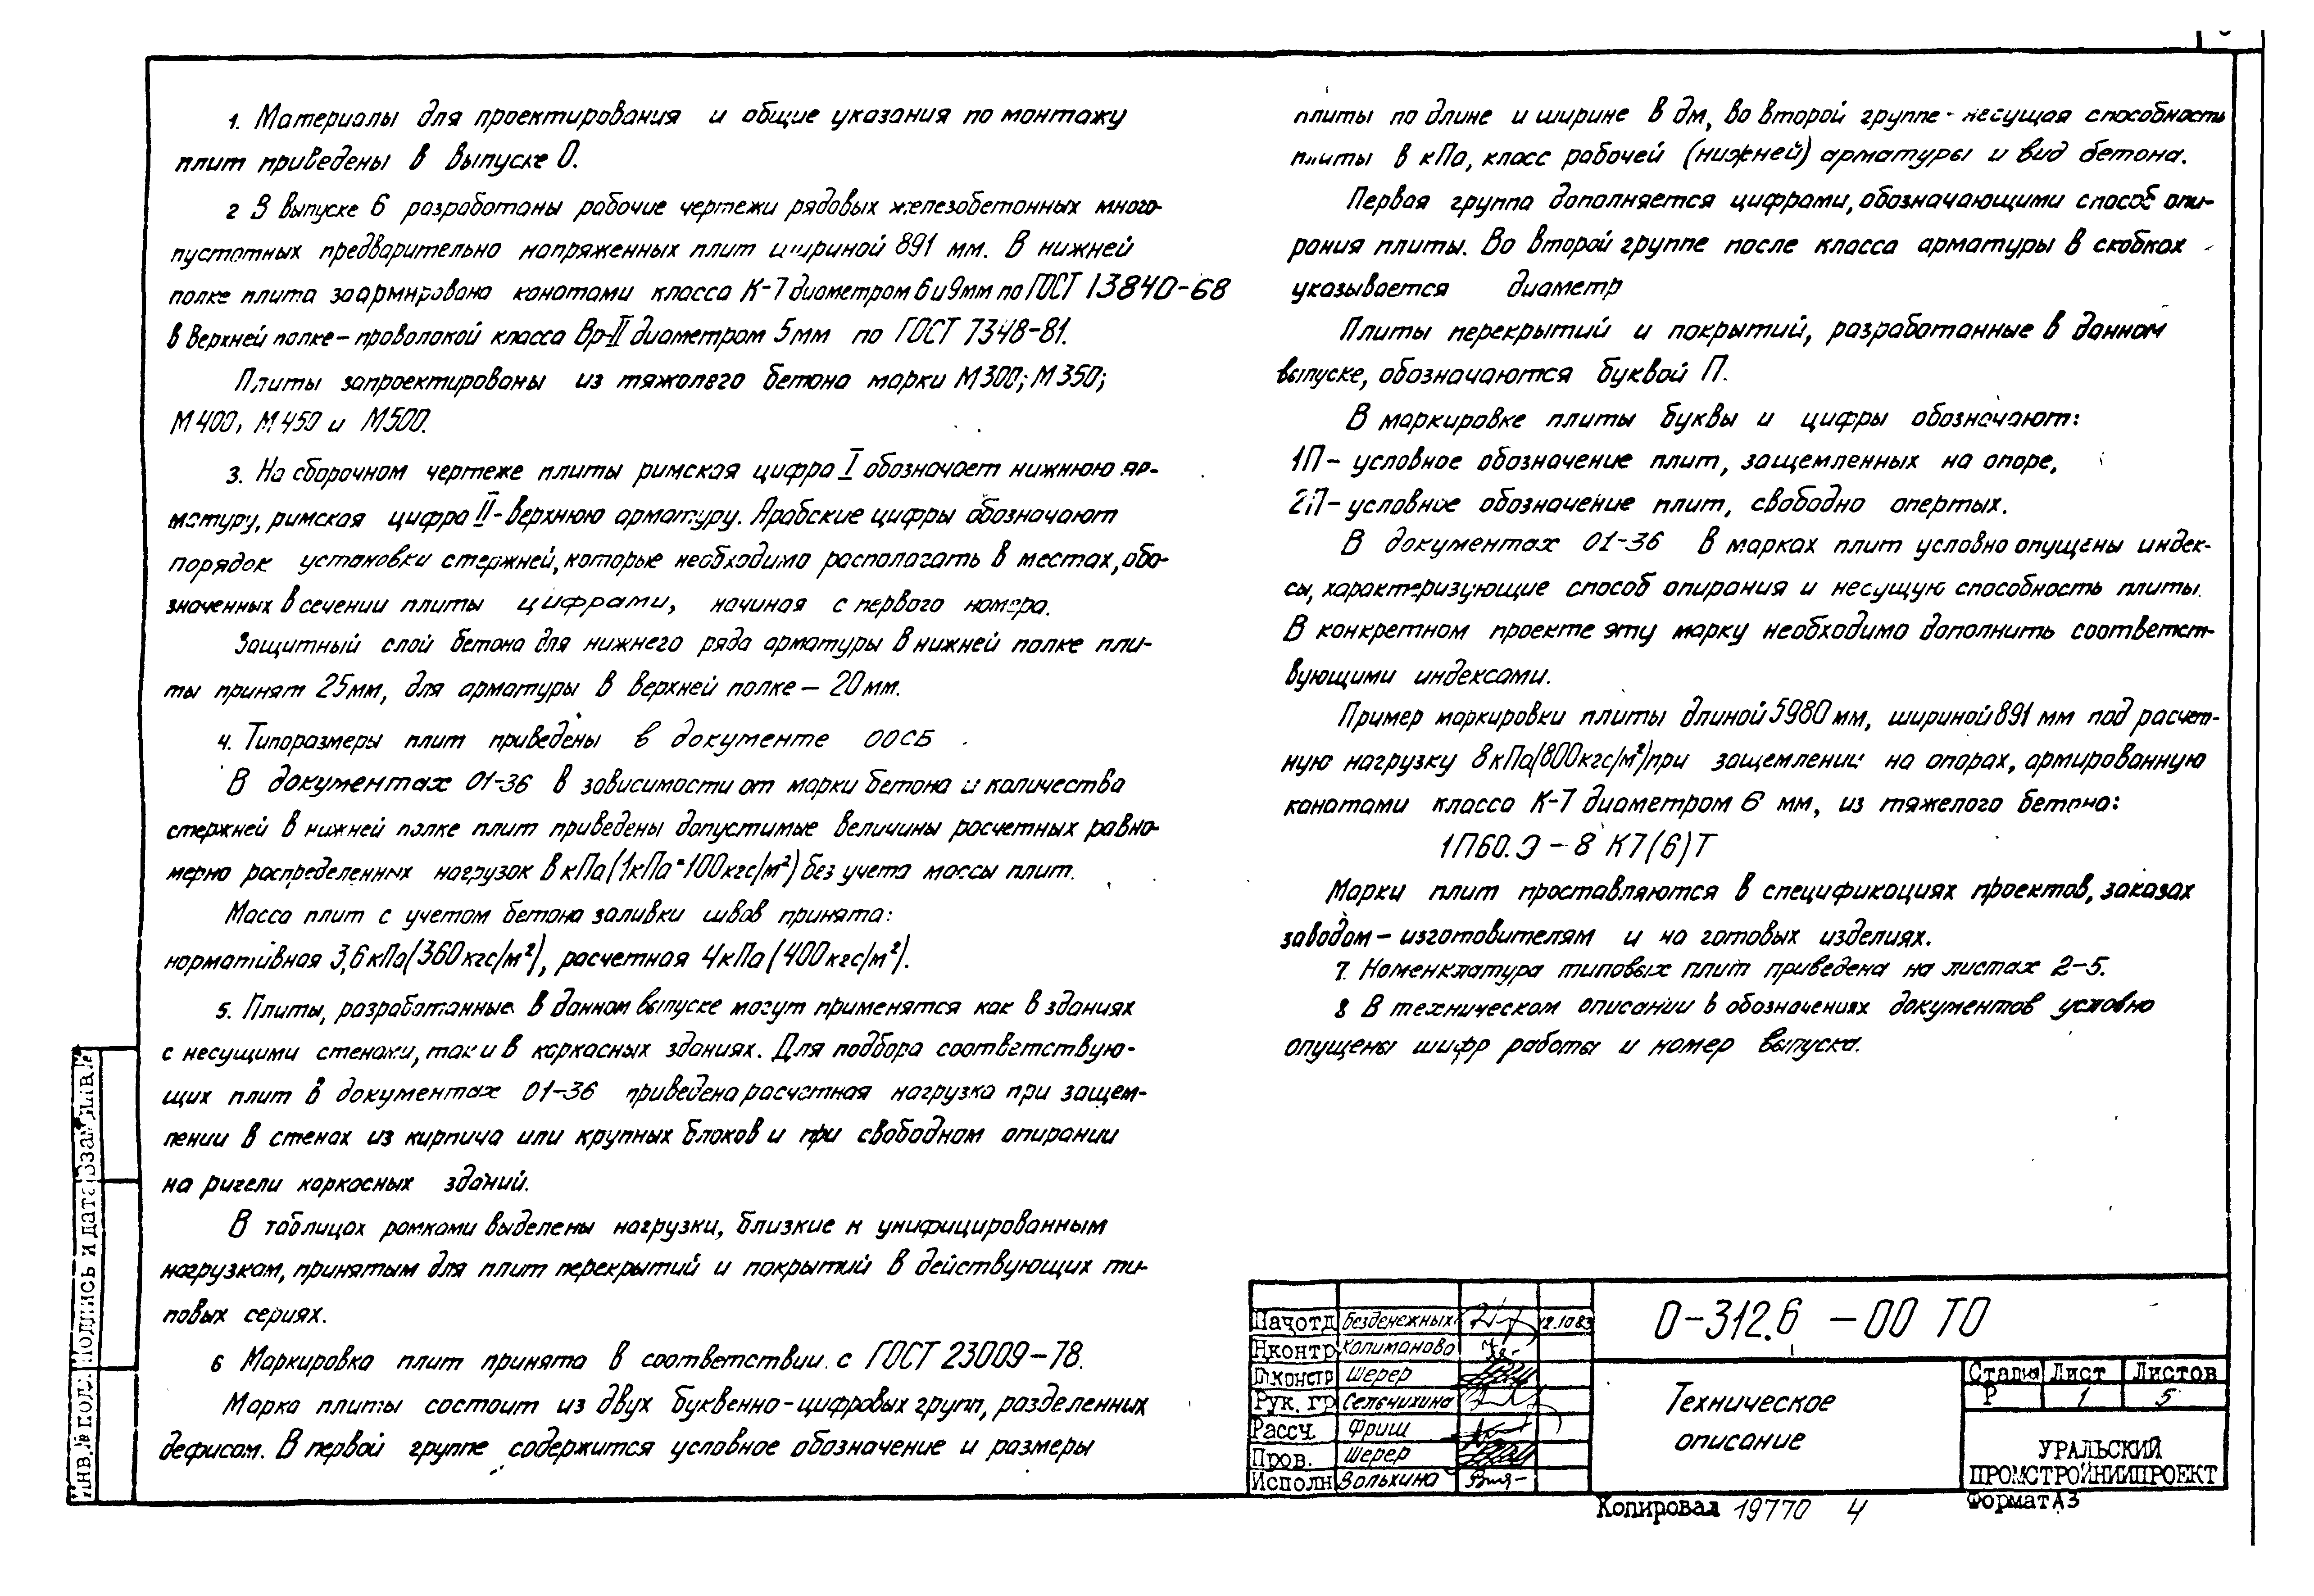 1. Материалы для проектирования и общие указания по монтажу
плит приведены в выпуске 0.
2 В выпуске 6 разработаны рабочие чертежи рядовых железобетонных много-
пустотных предварительно напряженных плит шириной 891 мм. В нижней
полке плита заармирована канатами класса К-7 диаметром 6 и 9мм по ГОСТ 13840-68
в верхней полке - проволокой класса Вр-II диаметром 5мм по ГОСТ 7348-81.
Плиты запроектированы из тяжолего бетона марки М300; М350;
М400, М450 и М500.
3. На сборочном чертеже плиты римская цифра I обозначает нижнюю ар-
матуру, римская цифра II- верхнюю арматуру. Арабские цифры обозначают
порядок установки стержней, которые необходимо распологать в местах, обо-
значенных в сечении плиты цифрами, начиная с первого номера.
Защитный слой бетона для нижнего ряда арматуры в нижней полке пли-
ты принят 25мм, для арматуры в верхней полке - 20мм.
4. Типоразмеры плит приведены в документе 00СБ .
В документах 01-36 в зависимости от марки бетона и количества
стержней в нижней полке плит приведены допустимые величины расчетных равно-
мерно распределенных нагрузок в кПа (1кПа=100кгс/м²) без учета массы плит.
Масса плит с учетом бетона заливки швов принята:
нормативная 3,6кПа (360кгс/м²), расчетная 4кПа (400кгс/м²).
5. Плиты, разработанные в данном выпуске могут применятся как в зданиях
с несущими стенами, так и в каркасных зданиях. Для подбора соответствую-
щих плит в документах 01-36 приведена расчетная нагрузка при защем-
лении в стенах из кирпича или крупных блоков и при свободном опирании
на ригели каркасных зданий.
В таблицах рамками выделены нагрузки, близкие к унифицированным
нагрузкам, принятым для плит перекрытий и покрытий в действующих ти-
повых сериях.
6 Маркировка плит принята в соответствии с ГОСТ 23009-78.
Марка плиты состоит из двух буквенно-цифровых групп, разделенных
дефисом. В первой группе содержится условное обозначение и размеры
плиты по длине и ширине в дм, во второй группе - несущая способность
плиты в кПа, класс рабочей (нижней) арматуры и вид бетона.
Первая группа дополняется цифрами, обозначающими способ опи-
рания плиты. Во второй группе после класса арматуры в скобках
указывается диаметр
Плиты перекрытий и покрытий, разработанные в данном
выпуске, обозначаются буквой П.
В маркировке плиты буквы и цифры обозначают:
1П - условное обозначение плит, защемленных на опоре,
2П - условное обозначение плит, свободно опертых.
В документах 01-36 в марках плит условно опущены индек-
сы, характеризующие способ опирания и несущую способность плиты.
В конкретном проекте эту марку необходимо дополнить соответст-
вующими индексами.
Пример маркировки плиты длиной 5980 мм, шириной 891 мм под расчет-
ную нагрузку 8 кПа (800кгс/м²) при защемлении на опорах, армированную
канатами класса К-7 диаметром 6 мм, из тяжелого бетона:
1П60.9 - 8 К7(6)Т
Марки плит проставляются в спецификациях проектов, заказах
заводам - изготовителям и на готовых изделиях.
7. Номенклатура типовых плит приведена на листах 2-5.
8 В техническом описании в обозначениях документов условно
опущены шифр работы и номер выпуска.
Инв.№ подл. Подпись и дата Взам.инв.№
Начотд Безденежных 12.10.83
Нконтр Калиманова
Гл.констр Шерер
Рук. гр Селечихина
Рассч. Фриш
Пров. Шерер
Исполн Вольхина
0-312.6 -00 ТО
Техническое
описание
Стадия Лист Листов
Р 1 5
УРАЛЬСКИЙ
ПРОМСТРОЙНИИПРОЕКТ
Копировал 19770 4 Формат А3